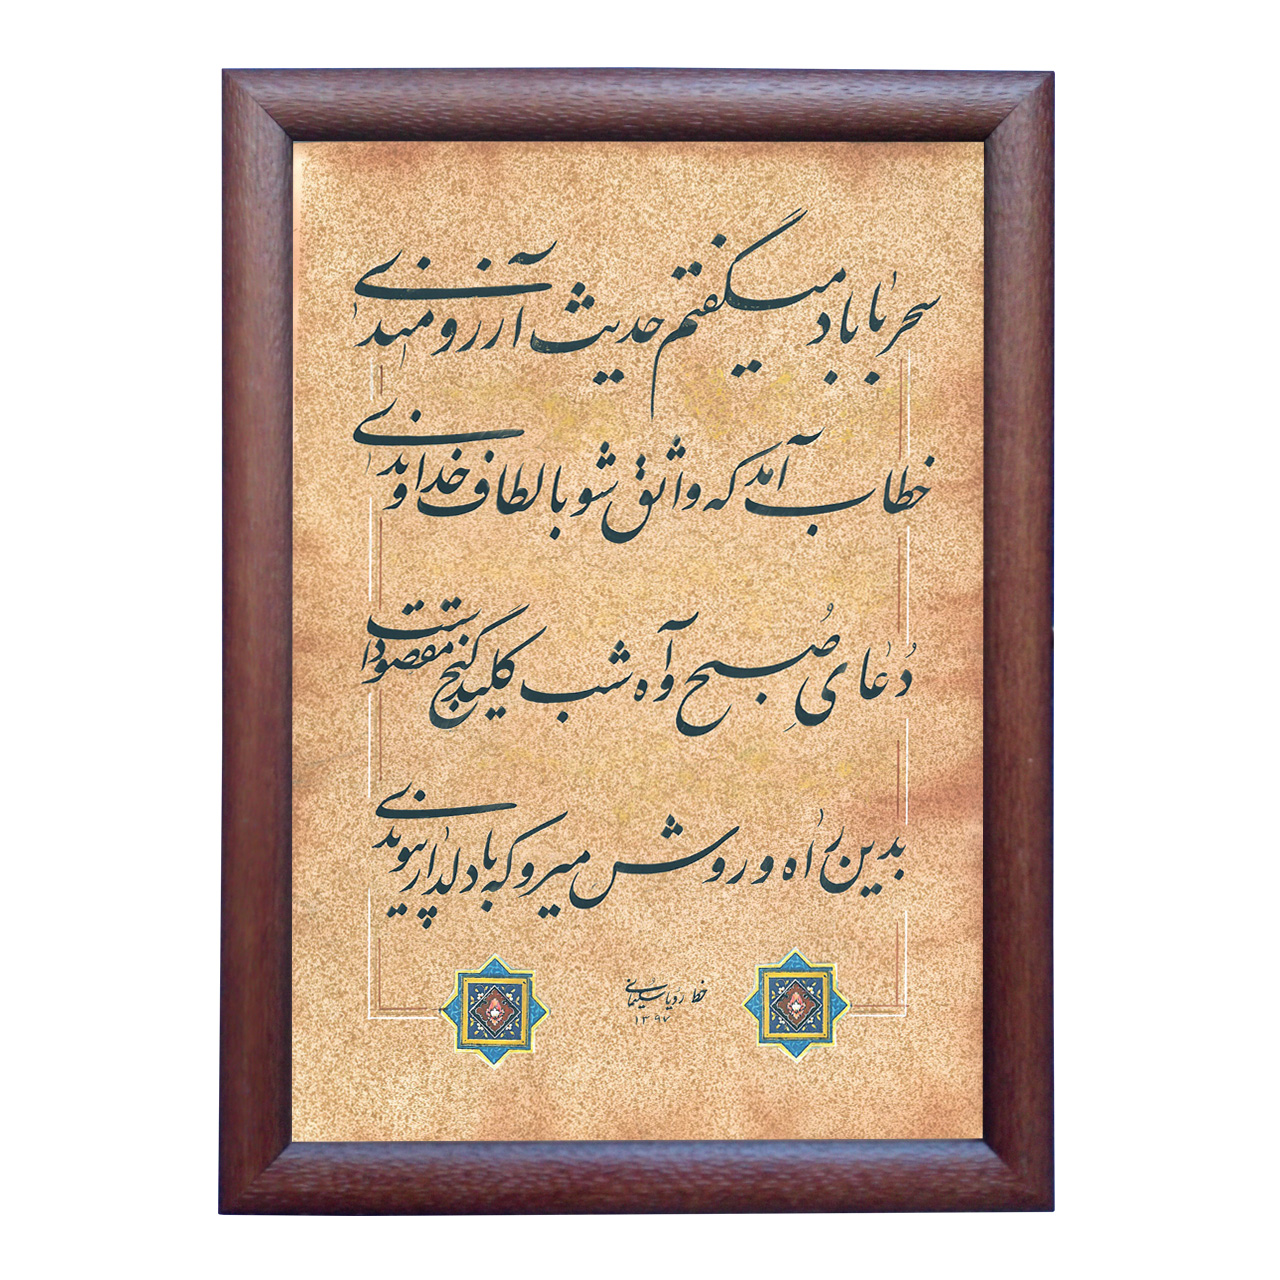 سحر با باد میگفتم حدیث آرزومندی
خطاب آمد که واثق شو بالطاف خداوندی
دُعایِ صُبح و آه شب کلید گنج مقصود است
بدین راه و روش میرو که با دلدار پیوندی
خط سلیمانی
۱۳۹۷